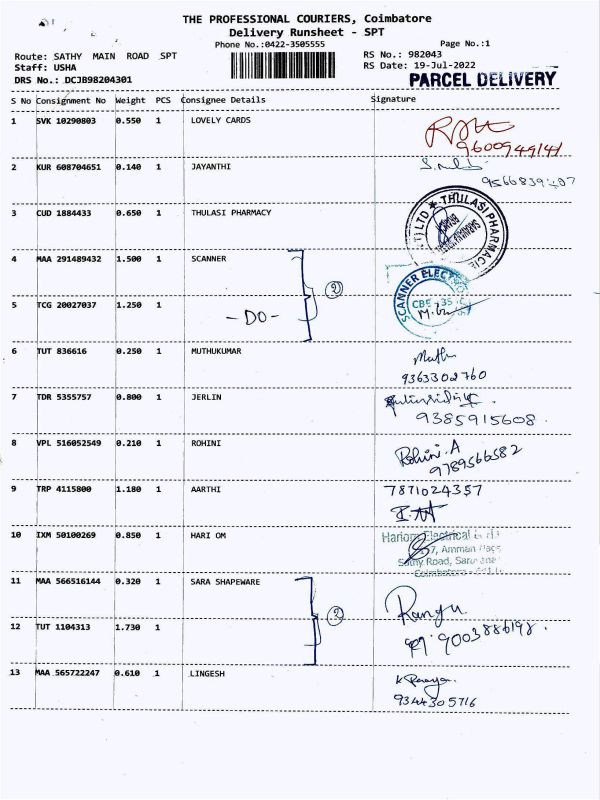 THE PROFESSIONAL COURIERS, Coimbatore
Delivery Runsheet - SPT
Phone No.:0422-3505555
Page No.:1
Route: SATHY MAIN ROAD SPT
RS No.: 982043
Staff: USHA
RS Date: 19-Jul-2022
DRS No.: DCJB98204301
PARCEL DELIVERY
S No Consignment No Weight PCS Consignee Details Signature
1 SVK 10290803 0.550 1 LOVELY CARDS
9600949141
2 KUR 608704651 0.140 1 JAYANTHI
3 CUD 1884433 0.650 1 THULASI PHARMACY
THULASI PHARMACIE
4 MAA 291489432 1.500 1 SCANNER
②
SCANNER
5 TCG 20027037 1.250 1 - DO -
6 TUT 836616 0.250 1 MUTHUKUMAR
9363302760
7 TDR 5355757 0.800 1 JERLIN
9385915608
8 VPL 516052549 0.210 1 ROHINI Rohini.A
9789566582
9 TRP 4115800 1.180 1 AARTHI 7871024357
10 IXM 50100269 0.850 1 HARI OM Hariom Electrical
7, Amman
Sathy Road,
Coimbatore
11 MAA 566516144 0.320 1 SARA SHAPEWARE
② Rangu
12 TUT 1104313 1.730 1
9003886198
13 MAA 565722247 0.610 1 LINGESH
9344305716